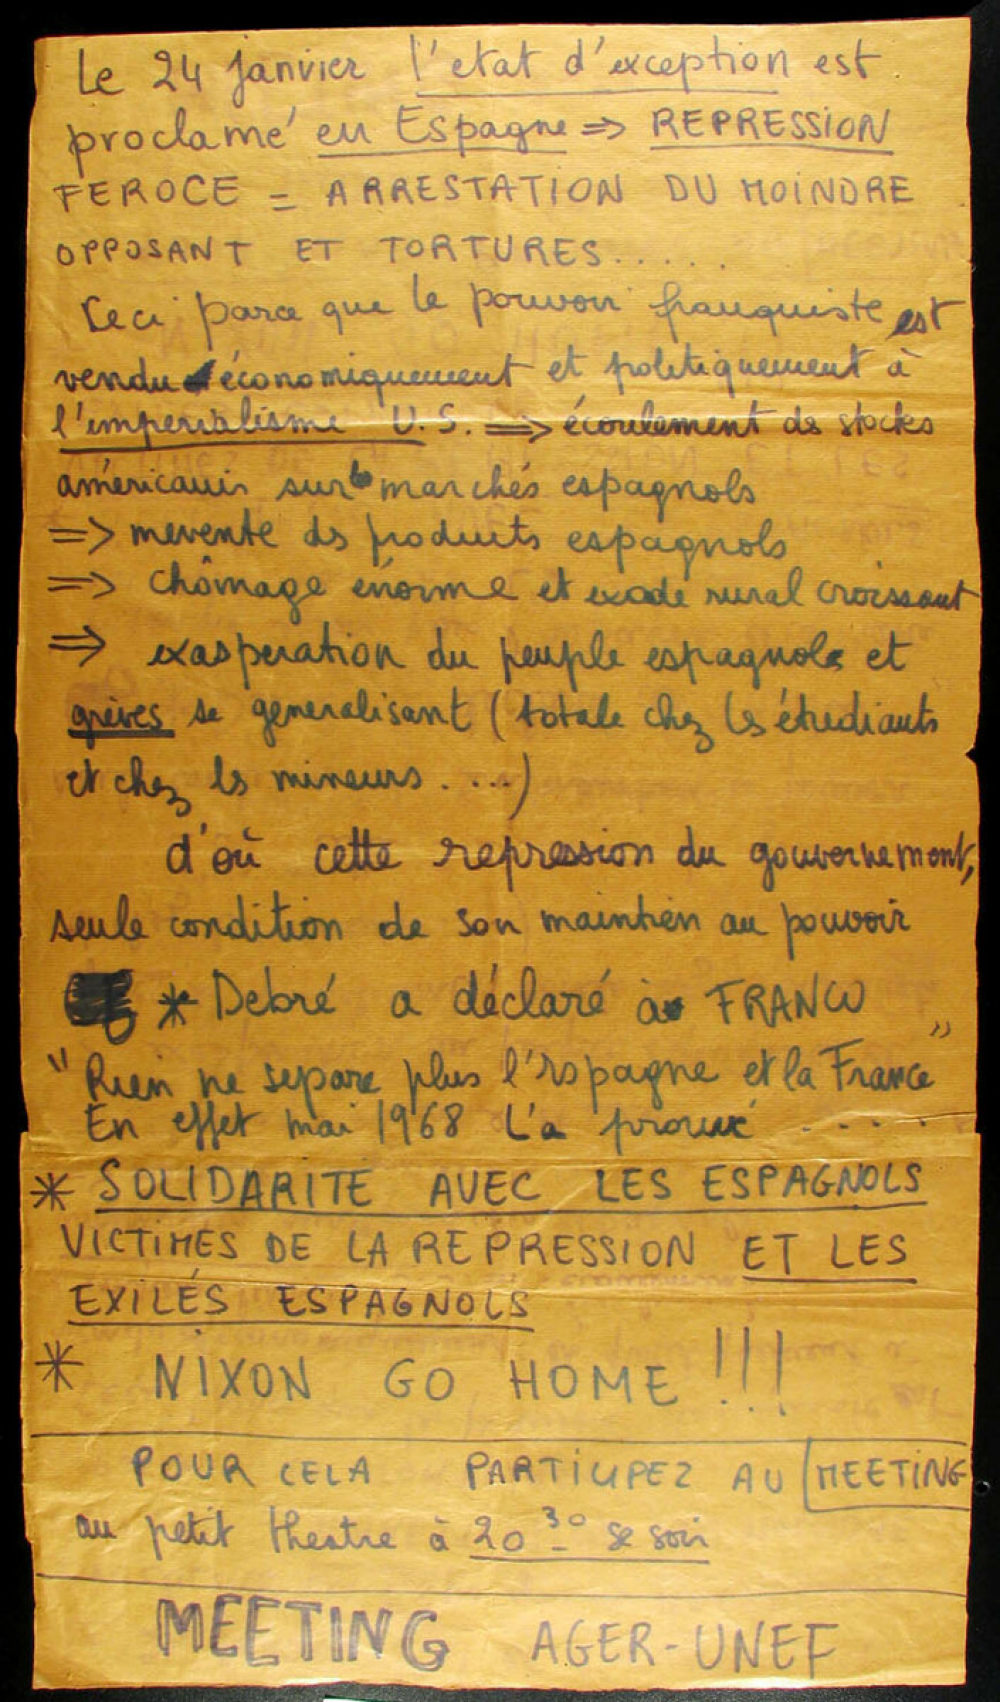 Le 24 Janvier l'etat d'exception est
proclamé en Espagne => REPRESSION
FEROCE = ARRESTATION DU MOINDRE
OPPOSANT ET TORTURES.....
Ceci parce que le pouvoir franquiste est
vendu économiquement et politiquement à
l'imperialisme U.S. => écoulement ds stocks
américains sur marchés espagnols
=> mevente ds produits espagnols
=> chômage énorme et exode rural croissant
=> exasperation du peuple espagnole et
grèves se generalisant (totale chez ls étudiants
et chez ls mineurs....)
d'où cette repression du gouvernement,
seule condition de son maintien au pouvoir
* Debré a déclaré à FRANCO
"Rien ne separe plus l'Espagne et la France"
En effet mai 1968 L'a prouvé.....
* SOLIDARITE AVEC LES ESPAGNOLS
VICTIMES DE LA REPRESSION ET LES
EXILÉS ESPAGNOLS
* NIXON GO HOME !!!
POUR CELA PARTICIPEZ AU MEETING
au petit theatre à 20 30 se soir
MEETING AGER-UNEF